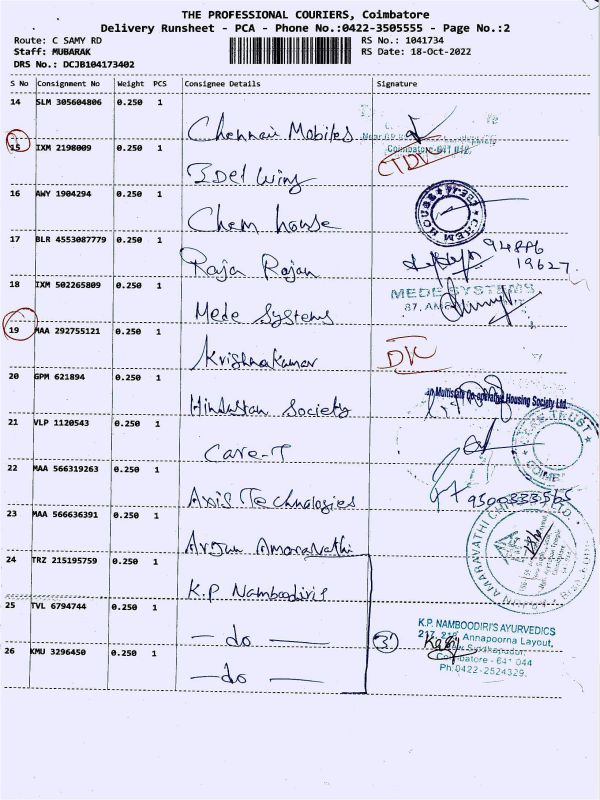 THE PROFESSIONAL COURIERS, Coimbatore
Delivery Runsheet - PCA - Phone No.:0422-3505555 - Page No.:2
Route: C SAMY RD
RS No.: 1041734
Staff: MUBARAK
RS Date: 18-Oct-2022
DRS No.: DCJB104173402
S No Consignment No Weight PCS Consignee Details Signature
14 SLM 305604806 0.250 1 Chennai Mobiles
Coimbatore-641 012.
15 IXM 2198009 0.250 1 IDel Wing CTDV
16 AWY 1904294 0.250 1 Chem house
CHEM HOUSE
17 BLR 4553087779 0.250 1 Raja Rajan
94886
19627
18 IXM 502265809 0.250 1 Mede Systems
MEDE SYSTEMS
19 MAA 292755121 0.250 1 Krishnakumar
20 GPM 621894 0.250 1 Hindustan Society
Multistate Co-operative Housing Society Ltd.
21 VLP 1120543 0.250 1 Care-T
CARE TRUST
22 MAA 566319263 0.250 1 Axis Technologies
9500333565
23 MAA 566636391 0.250 1 Arjun Amaravathi
24 TRZ 215195759 0.250 1 K.P Namboodiris
25 TVL 6794744 0.250 1 — do —
3
26 KMU 3296450 0.250 1 — do —
K.P. NAMBOODIRI'S AYURVEDICS
Annapoorna Layout,
Coimbatore - 641 044
Ph:0422-2524329.